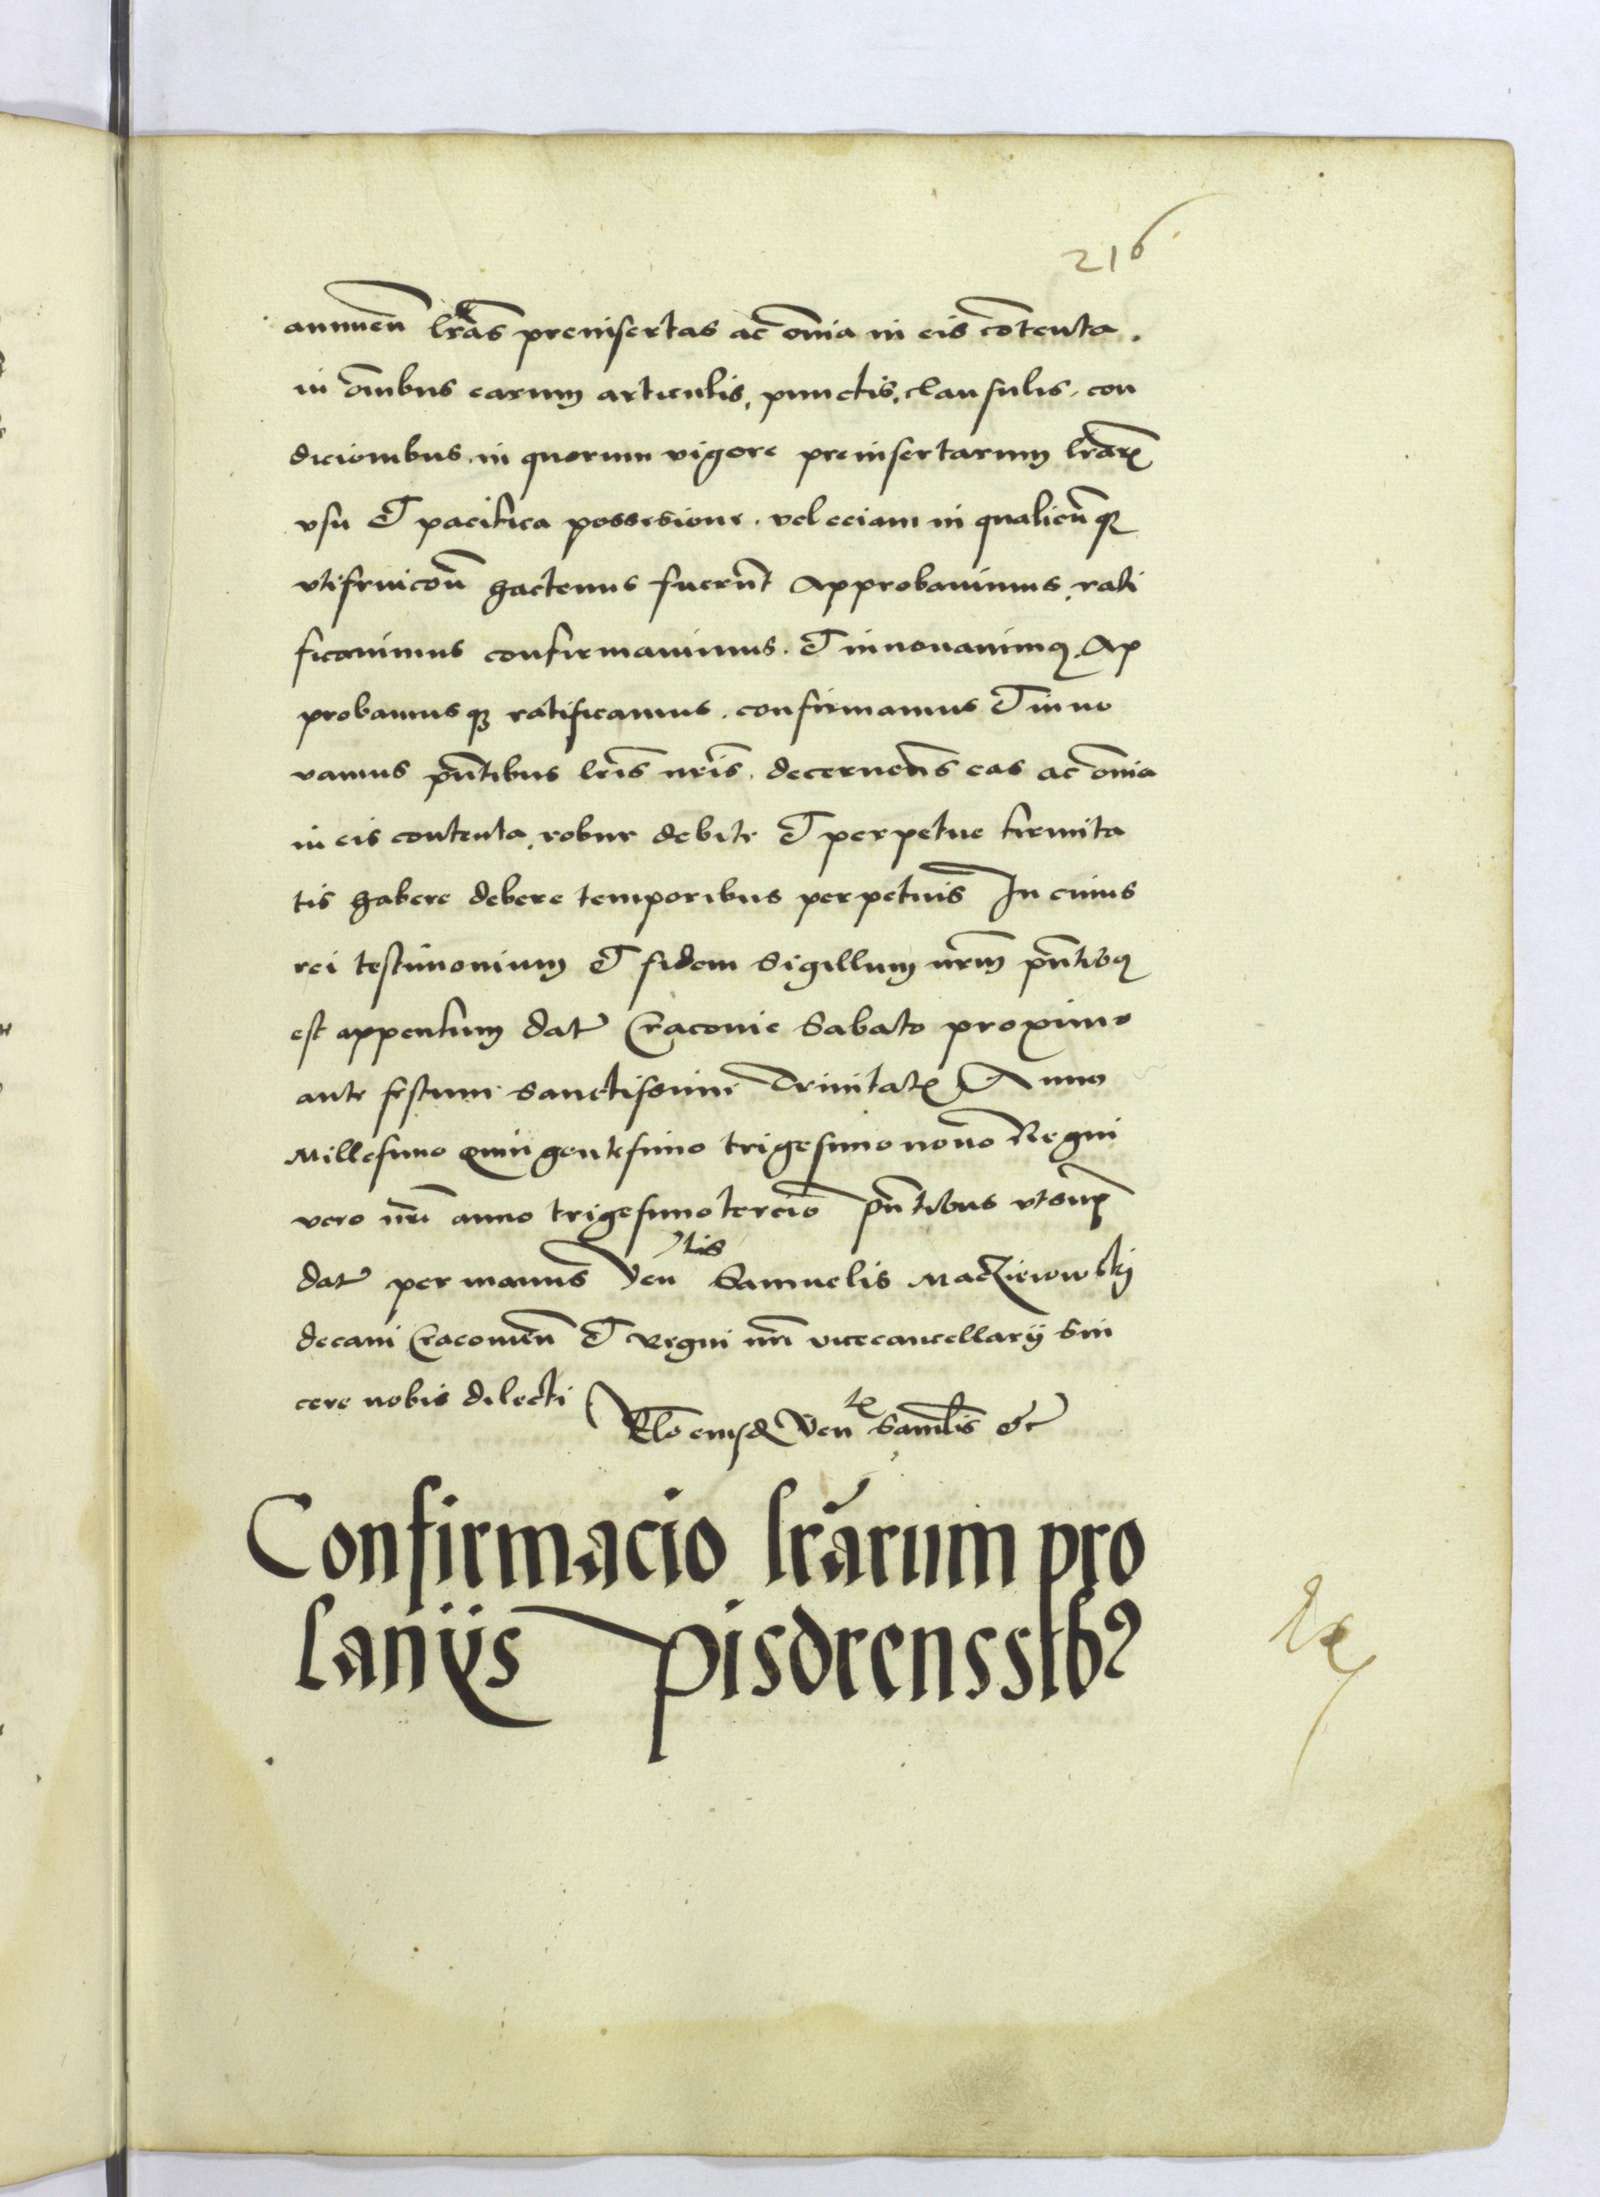 216
annuen lras preinsertas ac omia in eis contenta.
in omibus earum articulis, punctis, clausulis, con
dicionibus in quorum vigore preinsertarum lrarum
vsu et pacifica possesione. vel eciam in qualicunque
vtifruicoun hactenus fuerunt Approbauimus, rati
ficauimus confirmauimus. et innouauimus. Ap
probamusque ratificamus. confirmamus et inno
vamus pntibus lris nris. decernens eas ac omia
in eis contenta, robur debite et perpetue firmita
tis habere debere temporibus perpetuis In cuius
rei testimonium et fidem Sigillum nrm pntibus
est appensum dat Cracouie Sabato proximo
ante festum sanctissime Trinitatis Anno
Millesimo quingentesimo trigesimo nono Regni
vero nri anno trigesimo tercio pntibus vtsup
dat per manus Ven tis Samuelis Macziewowskj
decani Cracouien et Regni nri vicecancellarij Sin
cere nobis dilecti
Rlo eiusd Ven Samlis etc
Confirmacio lrarum pro
Lanijs Pisdrenssibus